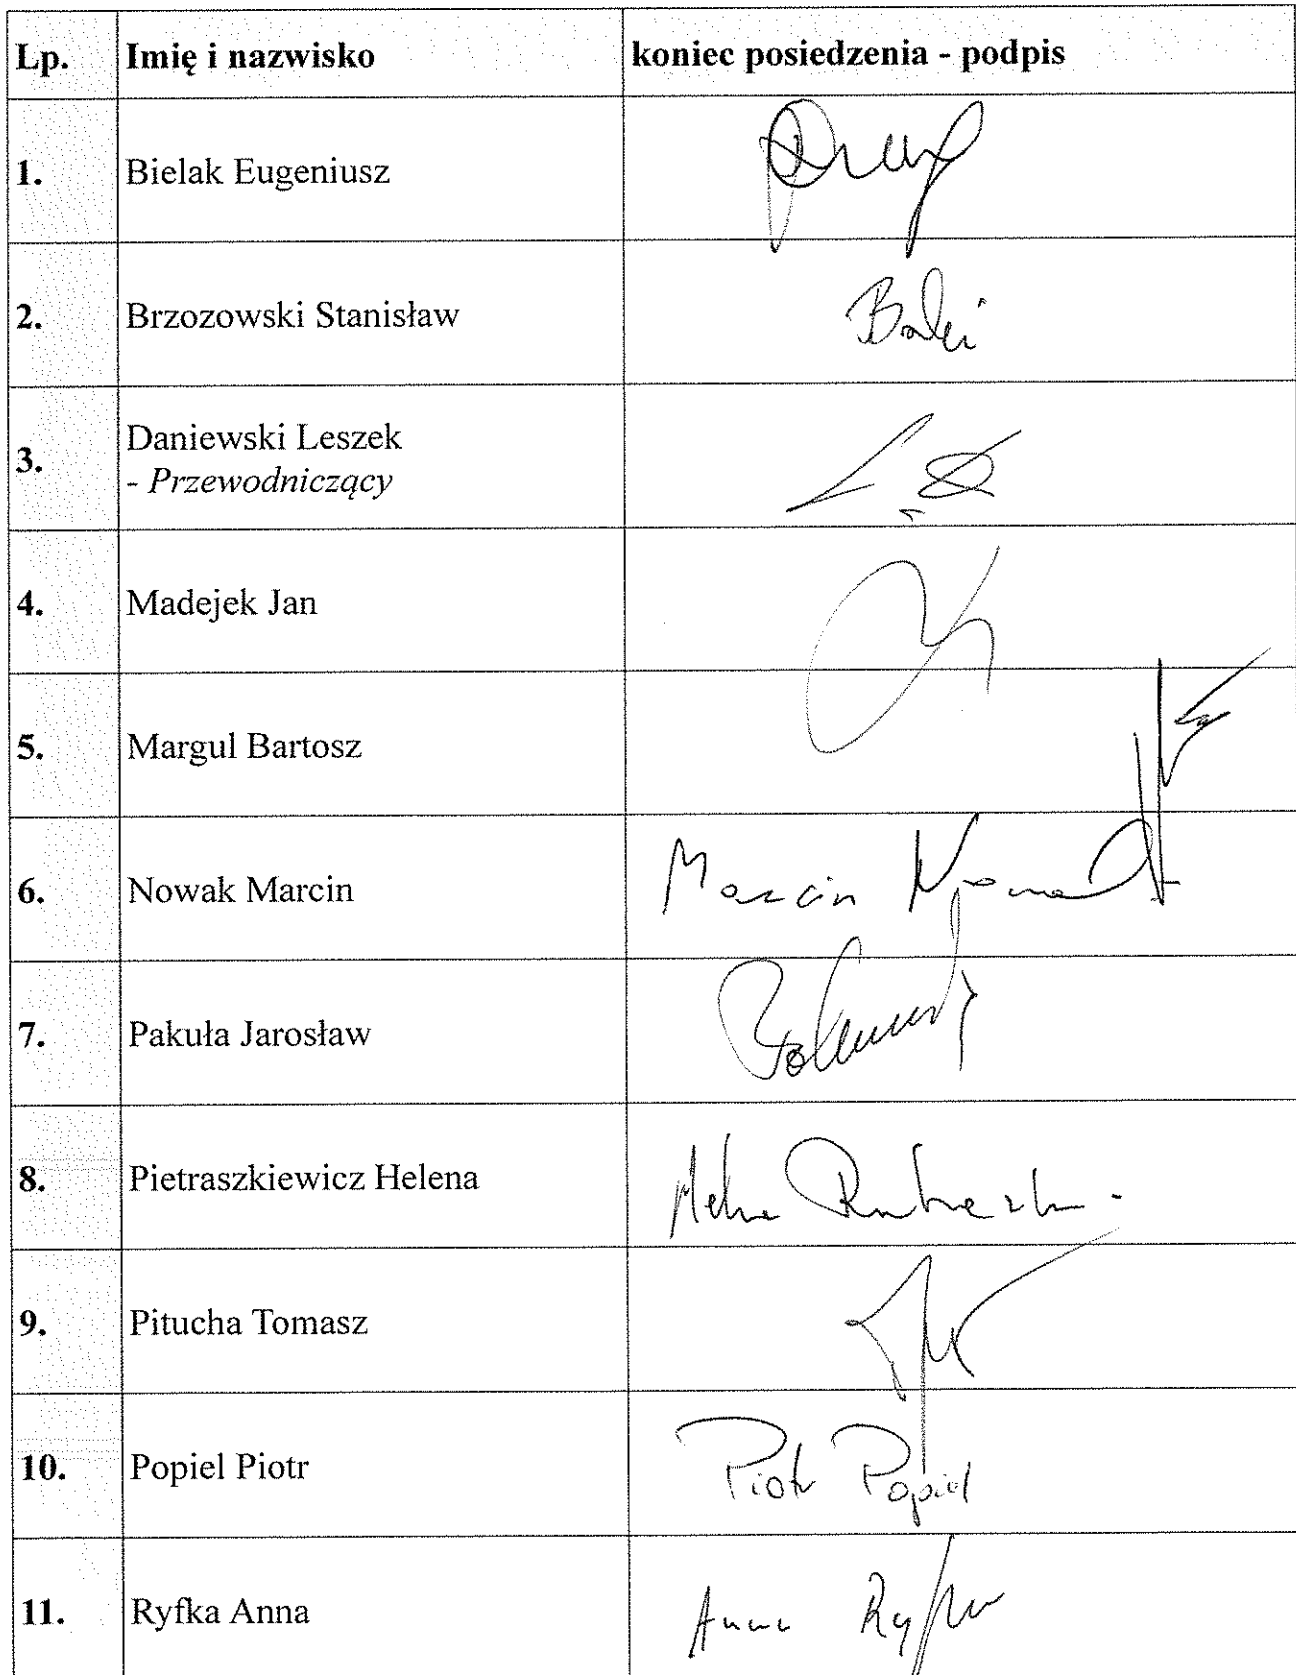 Lp. Imię i nazwisko koniec posiedzenia - podpis
1. Bielak Eugeniusz
2. Brzozowski Stanisław
3. Daniewski Leszek
- Przewodniczący
4. Madejek Jan
5. Margul Bartosz
6. Nowak Marcin Marcin Nowak
7. Pakuła Jarosław
8. Pietraszkiewicz Helena
9. Pitucha Tomasz
10. Popiel Piotr Piotr Popiel
11. Ryfka Anna Anna Ryfka